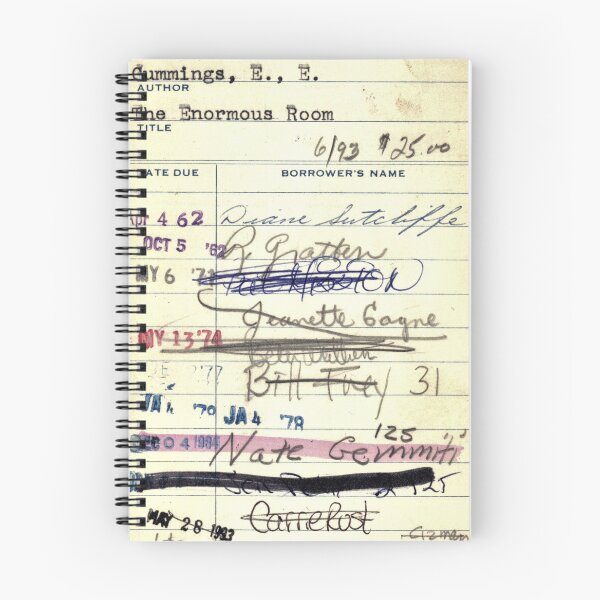 Cummings, E., E.
AUTHOR
The Enormous Room
TITLE
6/93 $25.00
DATE DUE BORROWER'S NAME
Apr 4 62 Diane Sutcliffe
OCT 5 '62 R. Grattan
MY 6 '71
Jeanette Gagne
MY 13 '74
Bill Frey 31
JA 4 '78 JA 4 '78
125
DEC 04 1984 Nate Gemmiti
125
MAY 28 1993 Carrie Rost